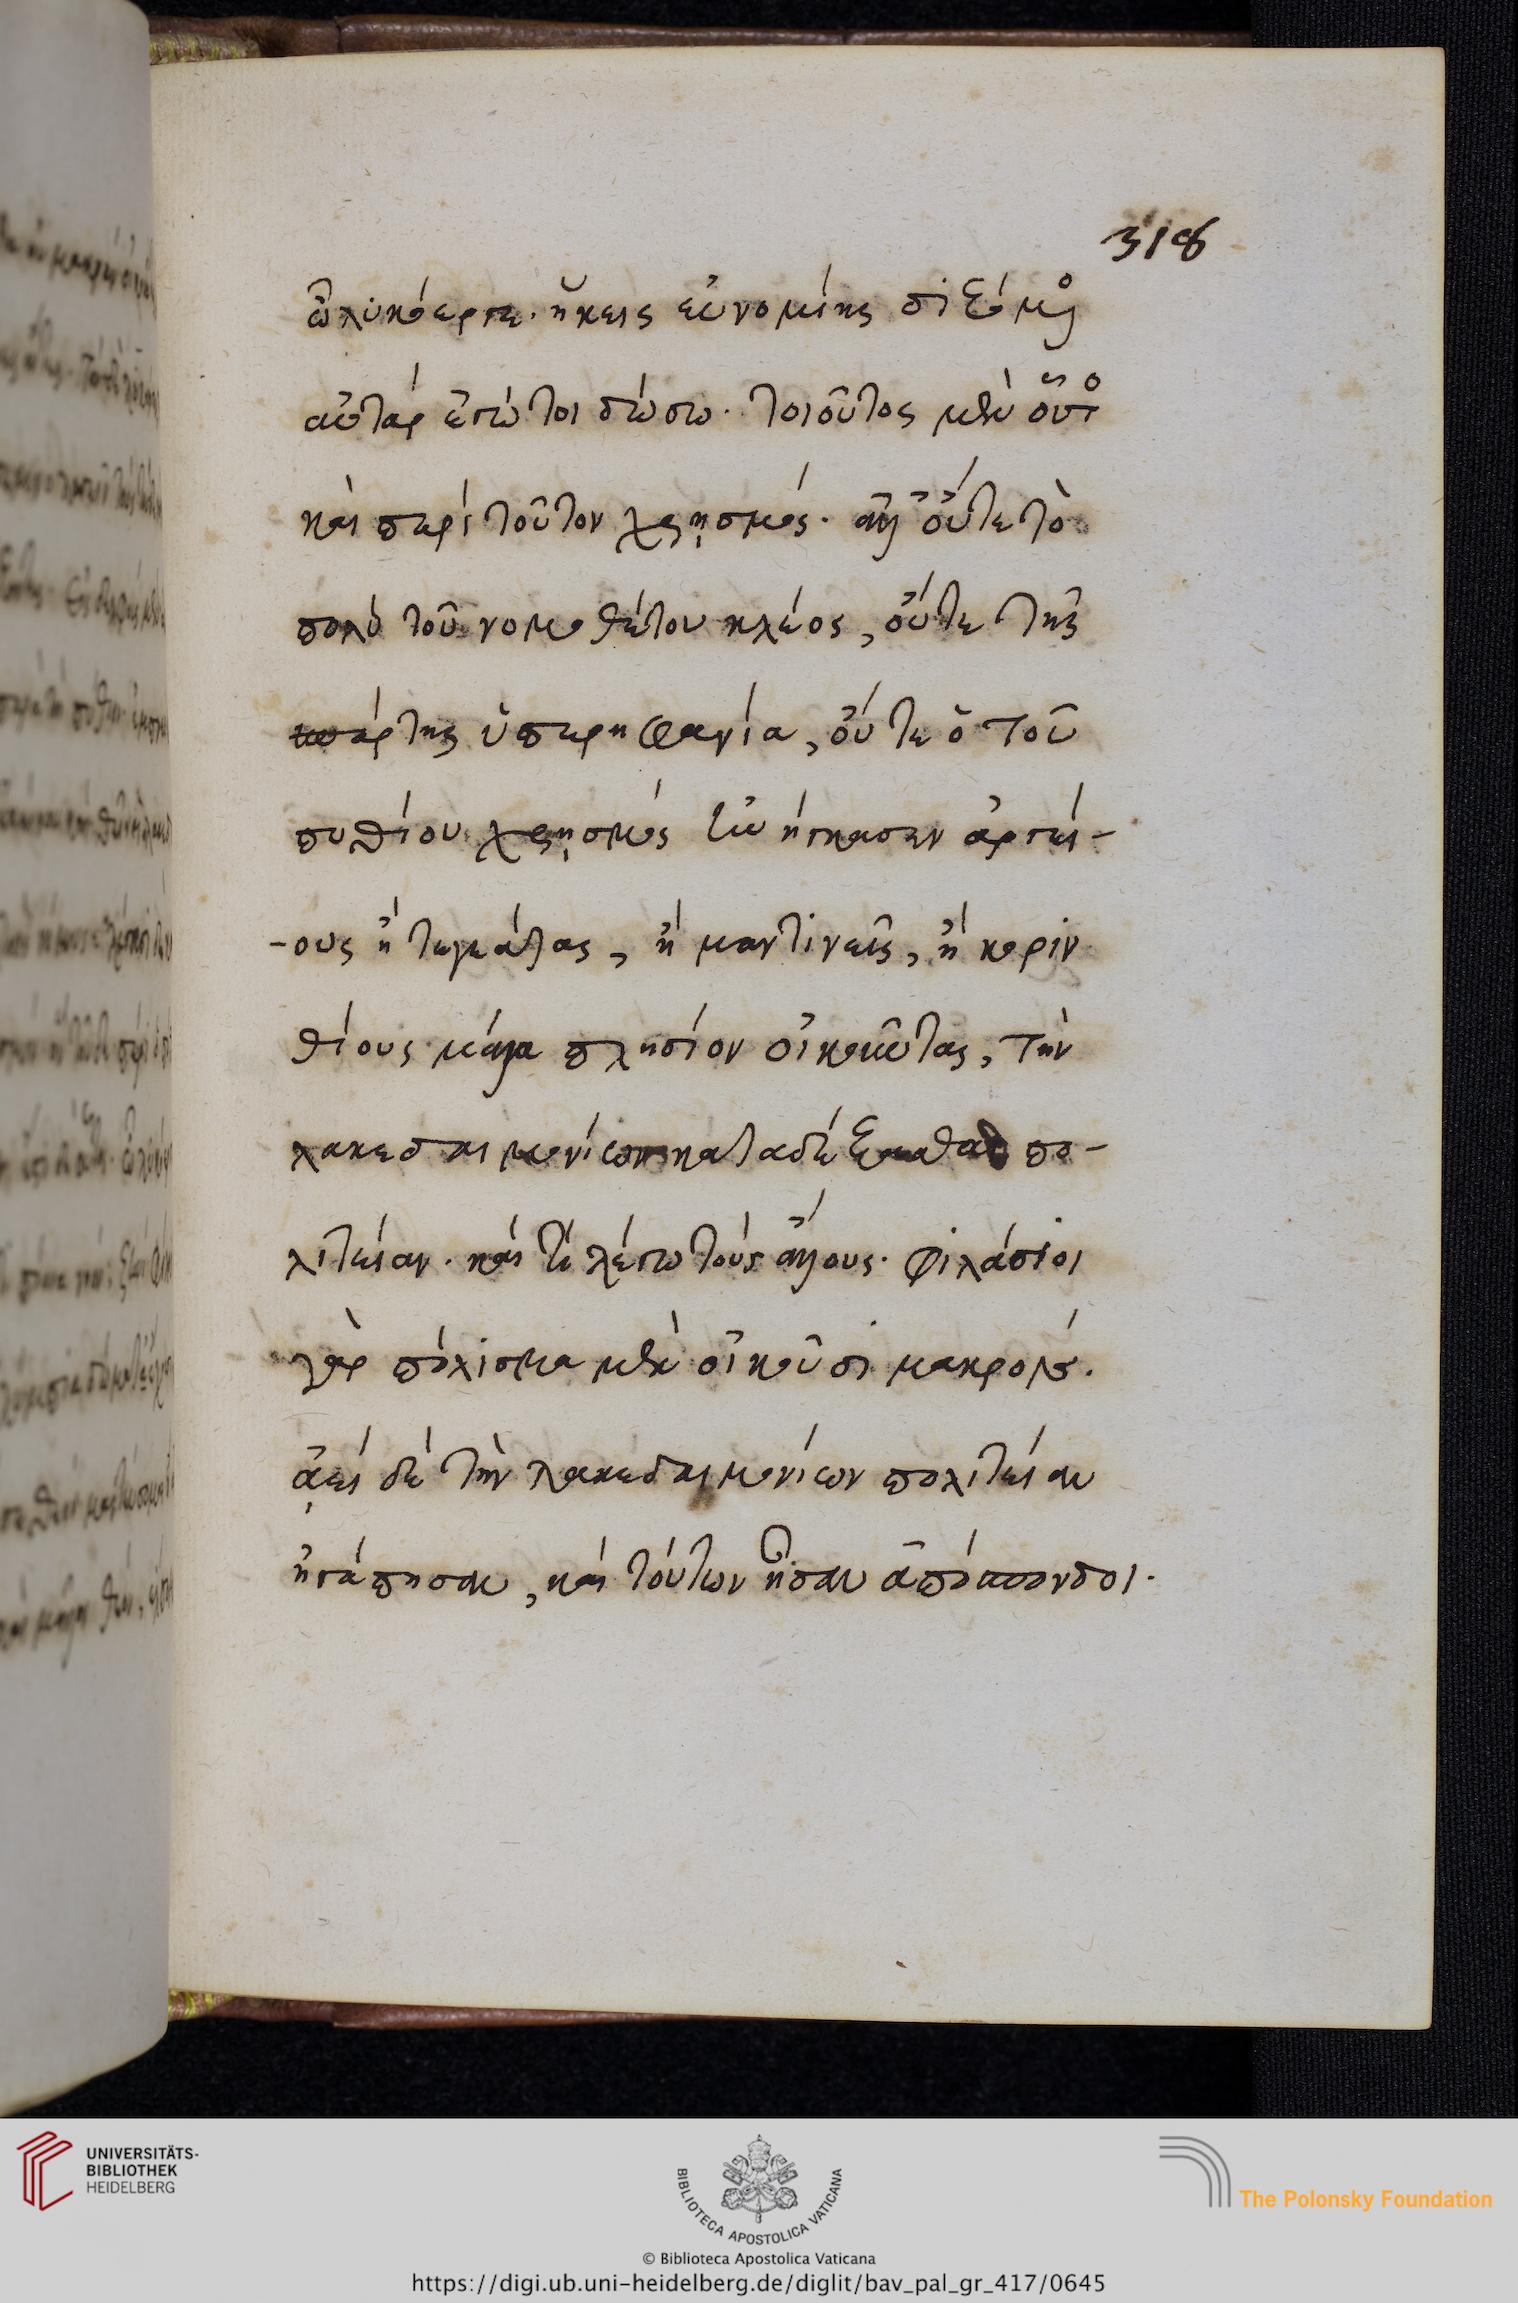 318
ὦ λυκόεργε. ἥκεις εὐνομίης διζόμενος
αὐτὰρ ἐγώ τοι δώσω. τοιοῦτος μὲν οὗτος
καὶ περὶ τοῦτον χρησμός. ἀλλ' οὔτε τὸ
πολὺ τοῦ νομοθέτου κλέος, οὔτε τῆς
σπάρτης ὑπερηφανία, οὔτε ὁ τοῦ
πυθίου χρησμός ἀργεί-
-ους ἢ τεγεάτας, ἢ μαντινεῖς, ἢ κοριν
θίους μάλα πλησίον οἰκοῦντας, τὴν
λακεδαιμονίων καταδέξασθαι πο-
λιτείαν. καὶ τί λέγω τοὺς ἄλλους. φιλάσιοι
γὰρ πόλισμα μὲν οἰκοῦσι
ἀεὶ δὲ τὴν λακεδαιμονίων πολιτείαν
ἠγάπησαν, καὶ τούτων ἦσαν
UNIVERSITÄTS-
BIBLIOTHEK
HEIDELBERG
BIBLIOTECA APOSTOLICA VATICANA
The Polonsky Foundation
© Biblioteca Apostolica Vaticana
https://digi.ub.uni-heidelberg.de/diglit/bav_pal_gr_417/0645